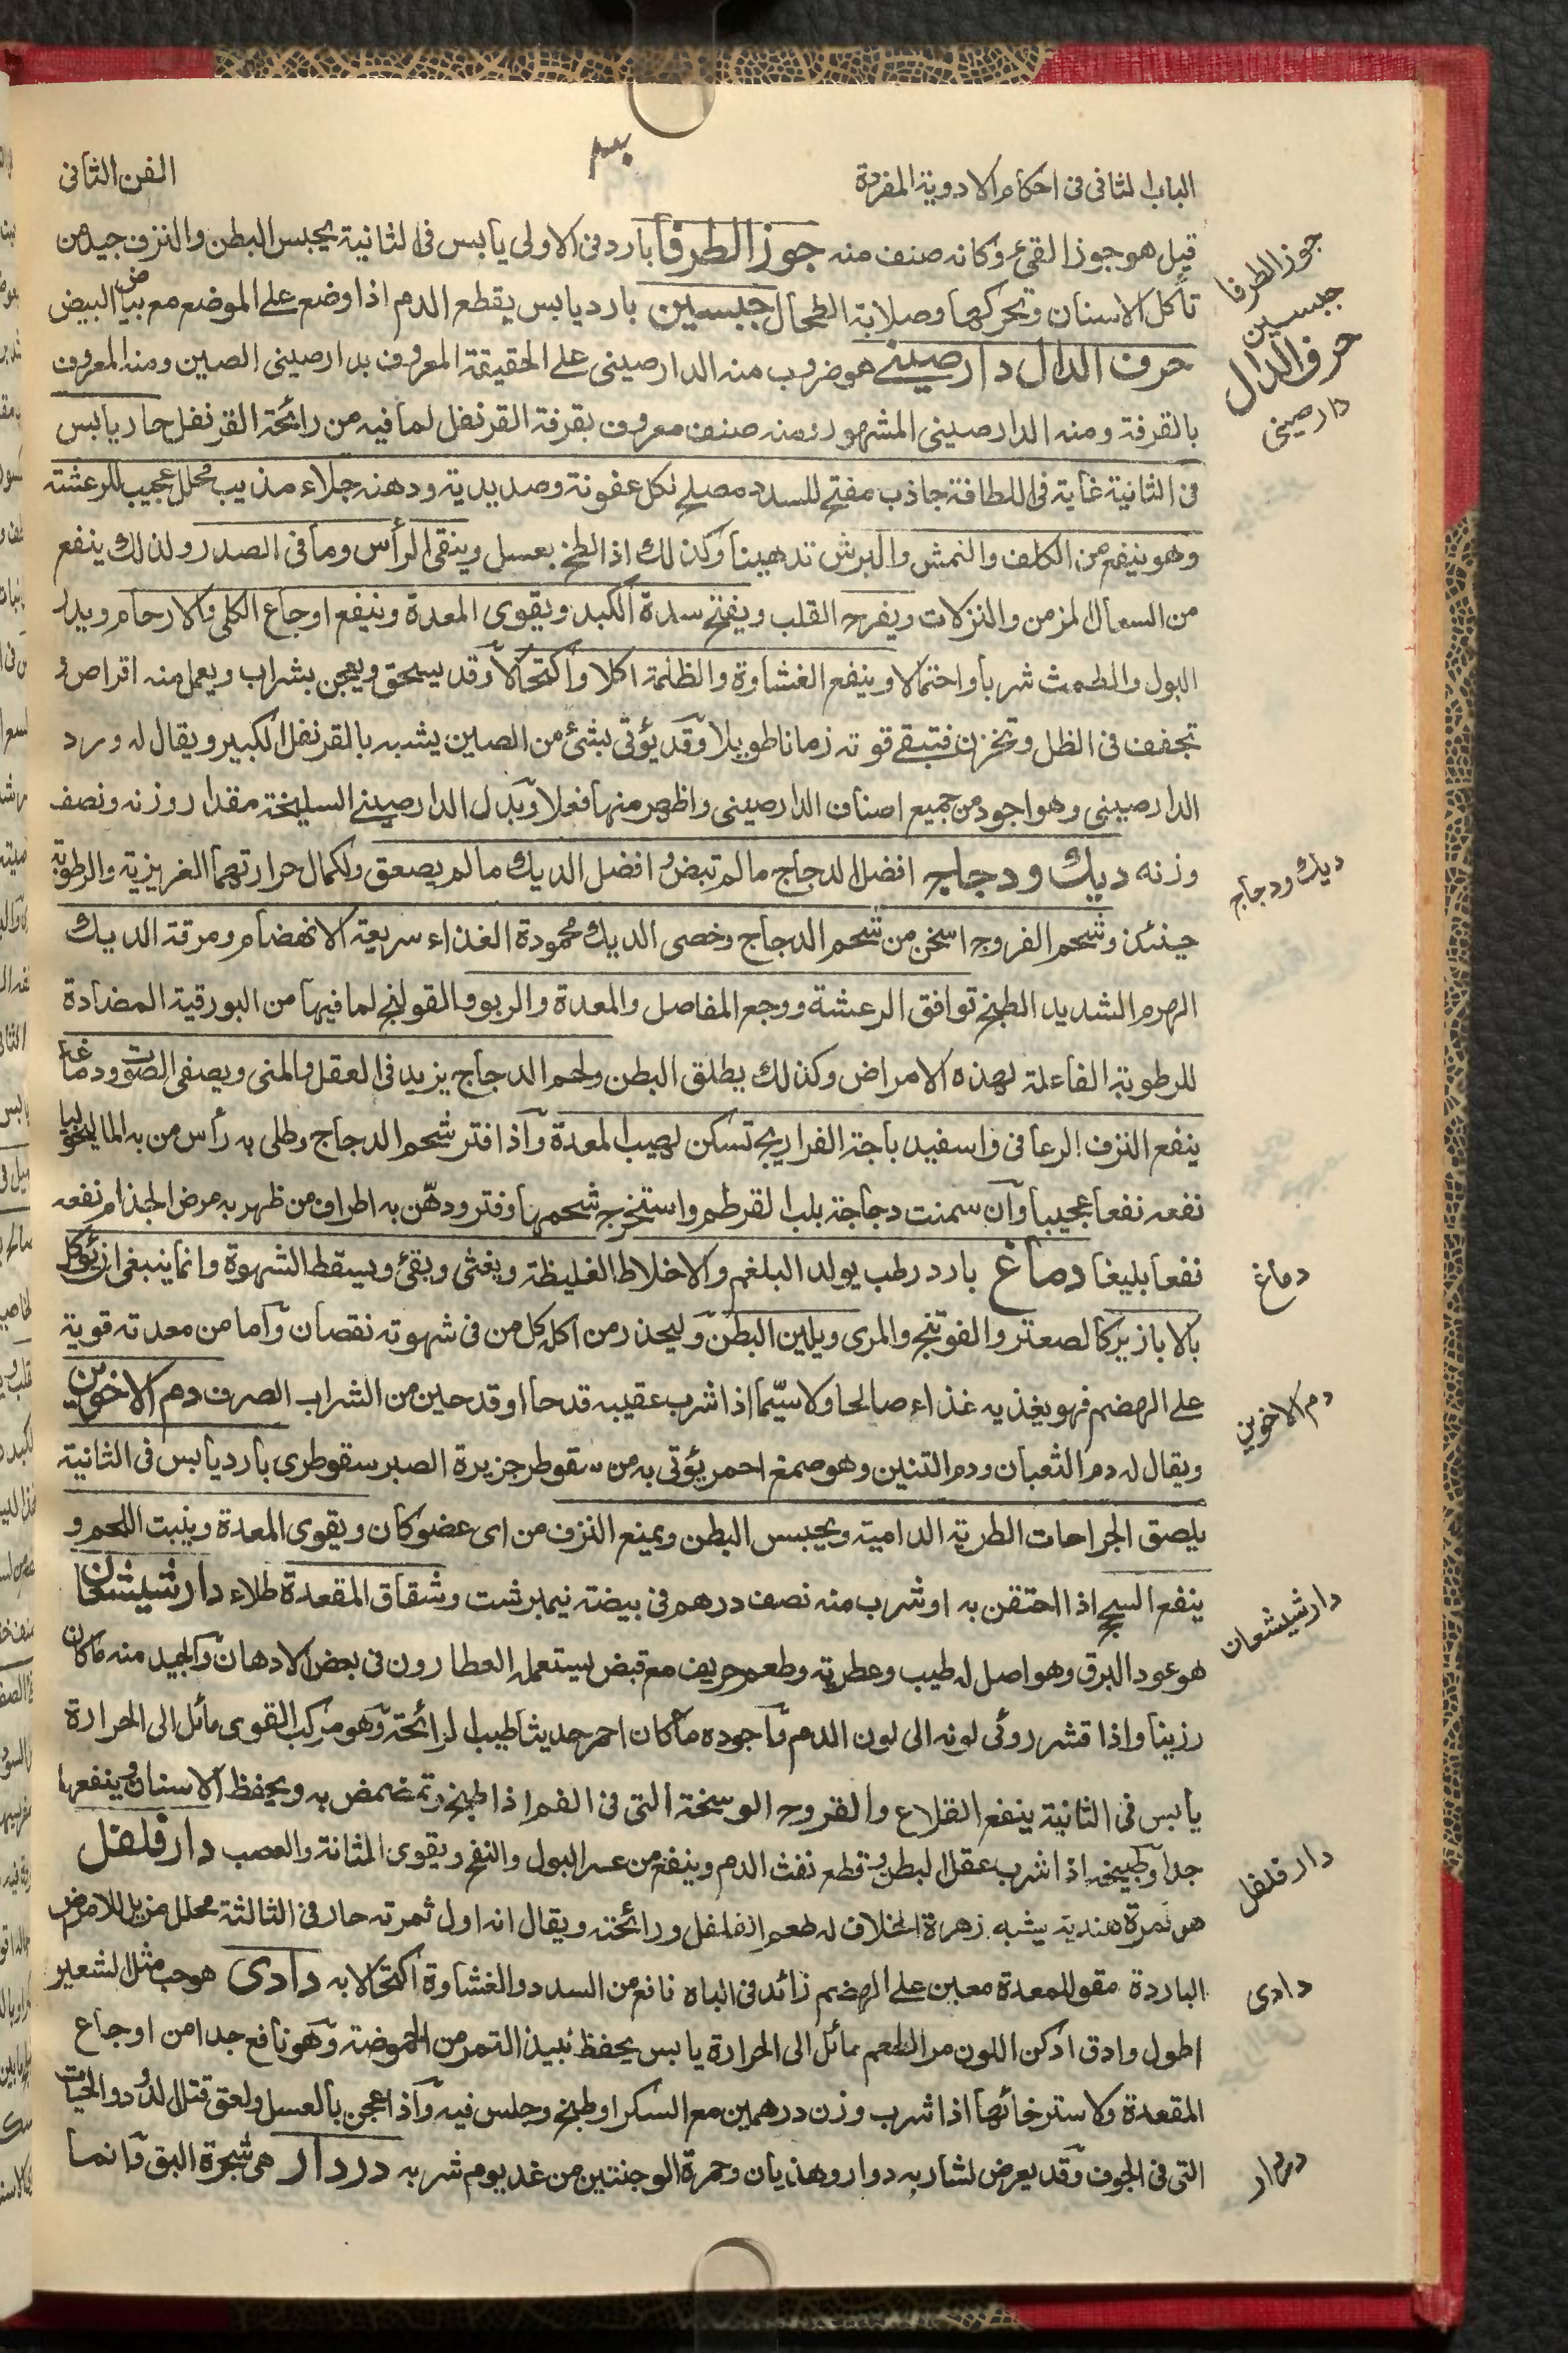 الباب الثانى فى احكام الادوية المفردة
الفن الثانى
قيل هو جوز القئ وكانه صنف منه جوز الطرفا بارد فى الاولى يابس فى الثانية يحبس البطن والنزف جيد من
تأكل الاسنان وتحركها وصلابة الطحال جبسين بارد يابس يقطع الدم اذا وضع على الموضع مع بياض البيض
حرف الدال دارصينى هو ضروب منه الدارصينى على الحقيقة المعروف بدارصينى الصين ومنه المعروف
بالقرفة ومنه الدارصينى المشهور ومنه صنف معروف بقرفة القرنفل لما فيه من رائحة القرنفل حار يابس
فى الثانية غاية فى اللطافة جاذب مفتح للسدد مصلح لكل عفونة وصديدية ودهنه جلاء مذيب محلل عجيب للرعشة
وهو ينفع من الكلف والنمش والبرش تدهينا وكذلك اذا لطخ بعسل وينقى الرأس وما فى الصدر ولذلك ينفع
من السعال المزمن والنزلات ويفرح القلب ويفتح سدة الكبد ويقوى المعدة وينفع اوجاع الكلى والارحام ويدر
البول والطمث شربا واحتمالا وينفع الغشاوة والظلمة اكلا واكتحالا وقد يسحق ويعجن بشراب ويعمل منه اقراص و
تجفف فى الظل وتخزن فتبقى قوته زمانا طويلا وقد يؤتى بشئ من الصين يشبه بالقرنفل الكبير ويقال له ورد
الدارصينى وهو اجود من جميع اصناف الدارصينى واظهر منها فعلا وبدل الدارصينى السليخة مقدار وزنه ونصف
وزنه ديك ودجاج افضل الدجاج ما لم تبض و افضل الديك ما لم يصعق ولكمال حرارتهما الغريزية والرطوبة
حينئذ وشحم الفروج اسخن من شحم الدجاج وخصى الديك محمودة الغذاء سريعة الانهضام ومرقة الديك
الهرم الشديد الطبخ توافق الرعشة ووجع المفاصل والمعدة والربو والقولنج لما فيها من البورقية المضادة
للرطوبة الفاعلة لهذه الامراض وكذلك يطلق البطن ولحم الدجاج يزيد فى العقل والمنى ويصفى الصوت ودماغها
ينفع النزف الرعافى واسفيدباجة الفراريج تسكن لهيب المعدة واذا فتر شحم الدجاج وطلى به رأس من به الماليخوليا
نفعه نفعا عجيبا وان سمنت دجاجة بلب القرطم واستخرج شحمها وفتر ودهن به اطراف من ظهر به مرض الجذام نفعه
نفعا بليغا دماغ بارد رطب يولد البلغم والاخلاط الغليظة ويغثى ويقئ ويسقط الشهوة وانما ينبغى ان يؤكل
بالابازير كالصعتر والفوتنج والمرى ويلين البطن وليحذر من اكله كل من فى شهوته نقصان واما من معدته قوية
على الهضم فهو يغذيه غذاء صالحا ولا سيّما اذا شرب عقيبه قدحا او قدحين من الشراب الصرف دم الاخوين
ويقال له دم الثعبان ودم التنين وهو صمغ احمر يؤتى به من سقوطر جزيرة الصبر سقوطرى بارد يابس فى الثانية
يلصق الجراحات الطرية الدامية ويحبس البطن ويمنع النزف من اى عضو كان ويقوى المعدة وينبت اللحم و
ينفع السحج اذا احتقن به او شرب منه نصف درهم فى بيضة نيمبرشت وشقاق المقعدة طلاء دارشيشعان
هو عود البرق وهو اصل له طيب وعطرية وطعم حريف مع قبض يستعمله العطارون فى بعض الادهان والجيد منه ما كان
رزينا واذا قشر روئى لونه الى لون الدم واجوده ما كان احمر حديثا طيب الرائحة وهو مركب القوى مائل الى الحرارة
يابس فى الثانية ينفع القلاع والقروح الوسخة التى فى الفم اذا طبخ وتمضمض به ويحفظ الاسنان وينفعها
جدا وطبيخه اذا شرب عقل البطن وقطع نفث الدم وينفع من عسر البول والنفخ ويقوى المثانة والعصب دارفلفل
هو ثمرة هندية يشبه زهرة الخلاف له طعم الفلفل ورائحته ويقال انه اول ثمرته حار فى الثالثة محلل مزيل للامراض
الباردة مقو للمعدة معين على الهضم زائد فى الباه نافع من السدد والغشاوة اكتحالا به دادى هو حب مثل الشعير
اطول وادق ادكن اللون مر الطعم مائل الى الحرارة يابس يحفظ نبيذ التمر من الحموضة وهو نافع جدا من اوجاع
المقعدة ولاسترخائها اذا شرب وزن درهمين مع السكر او طبخ وجلس فيه واذا عجن بالعسل ولعق قتل الدود والحيات
التى فى الجوف وقد يعرض لشاربه دوار وهذيان وحمرة الوجنتين من غد يوم شربه دردار هى شجرة البق وانما
جوز الطرفا
جبسين
حرف الدال
دارصينى
ديك ودجاج
دماغ
دم الاخوين
دارشيشعان
دارفلفل
دادى
دردار